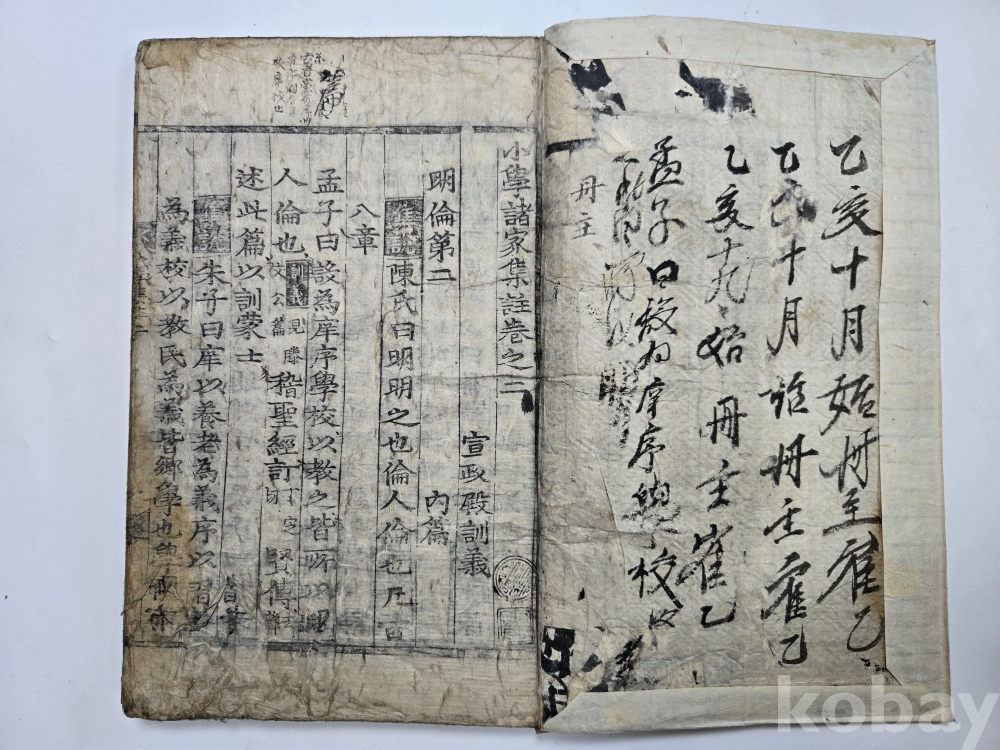 乙亥十月始冊主崔乙
乙亥十月始冊主崔乙
乙亥十九始冊主崔乙
孟子曰設為庠序學校以
冊主
小學諸家集註卷之二
宣政殿訓義
明倫第二
內篇
陳氏曰明明之也倫人倫也凡百
八章
孟子曰設為庠序學校以教之皆所以明
人倫也 訓義 見滕文公篇 稽聖經訂 賢傳
述此篇以訓蒙士
朱子曰庠以養老為義序以習
為義校以教民為義皆鄉學也學
篇
kobay